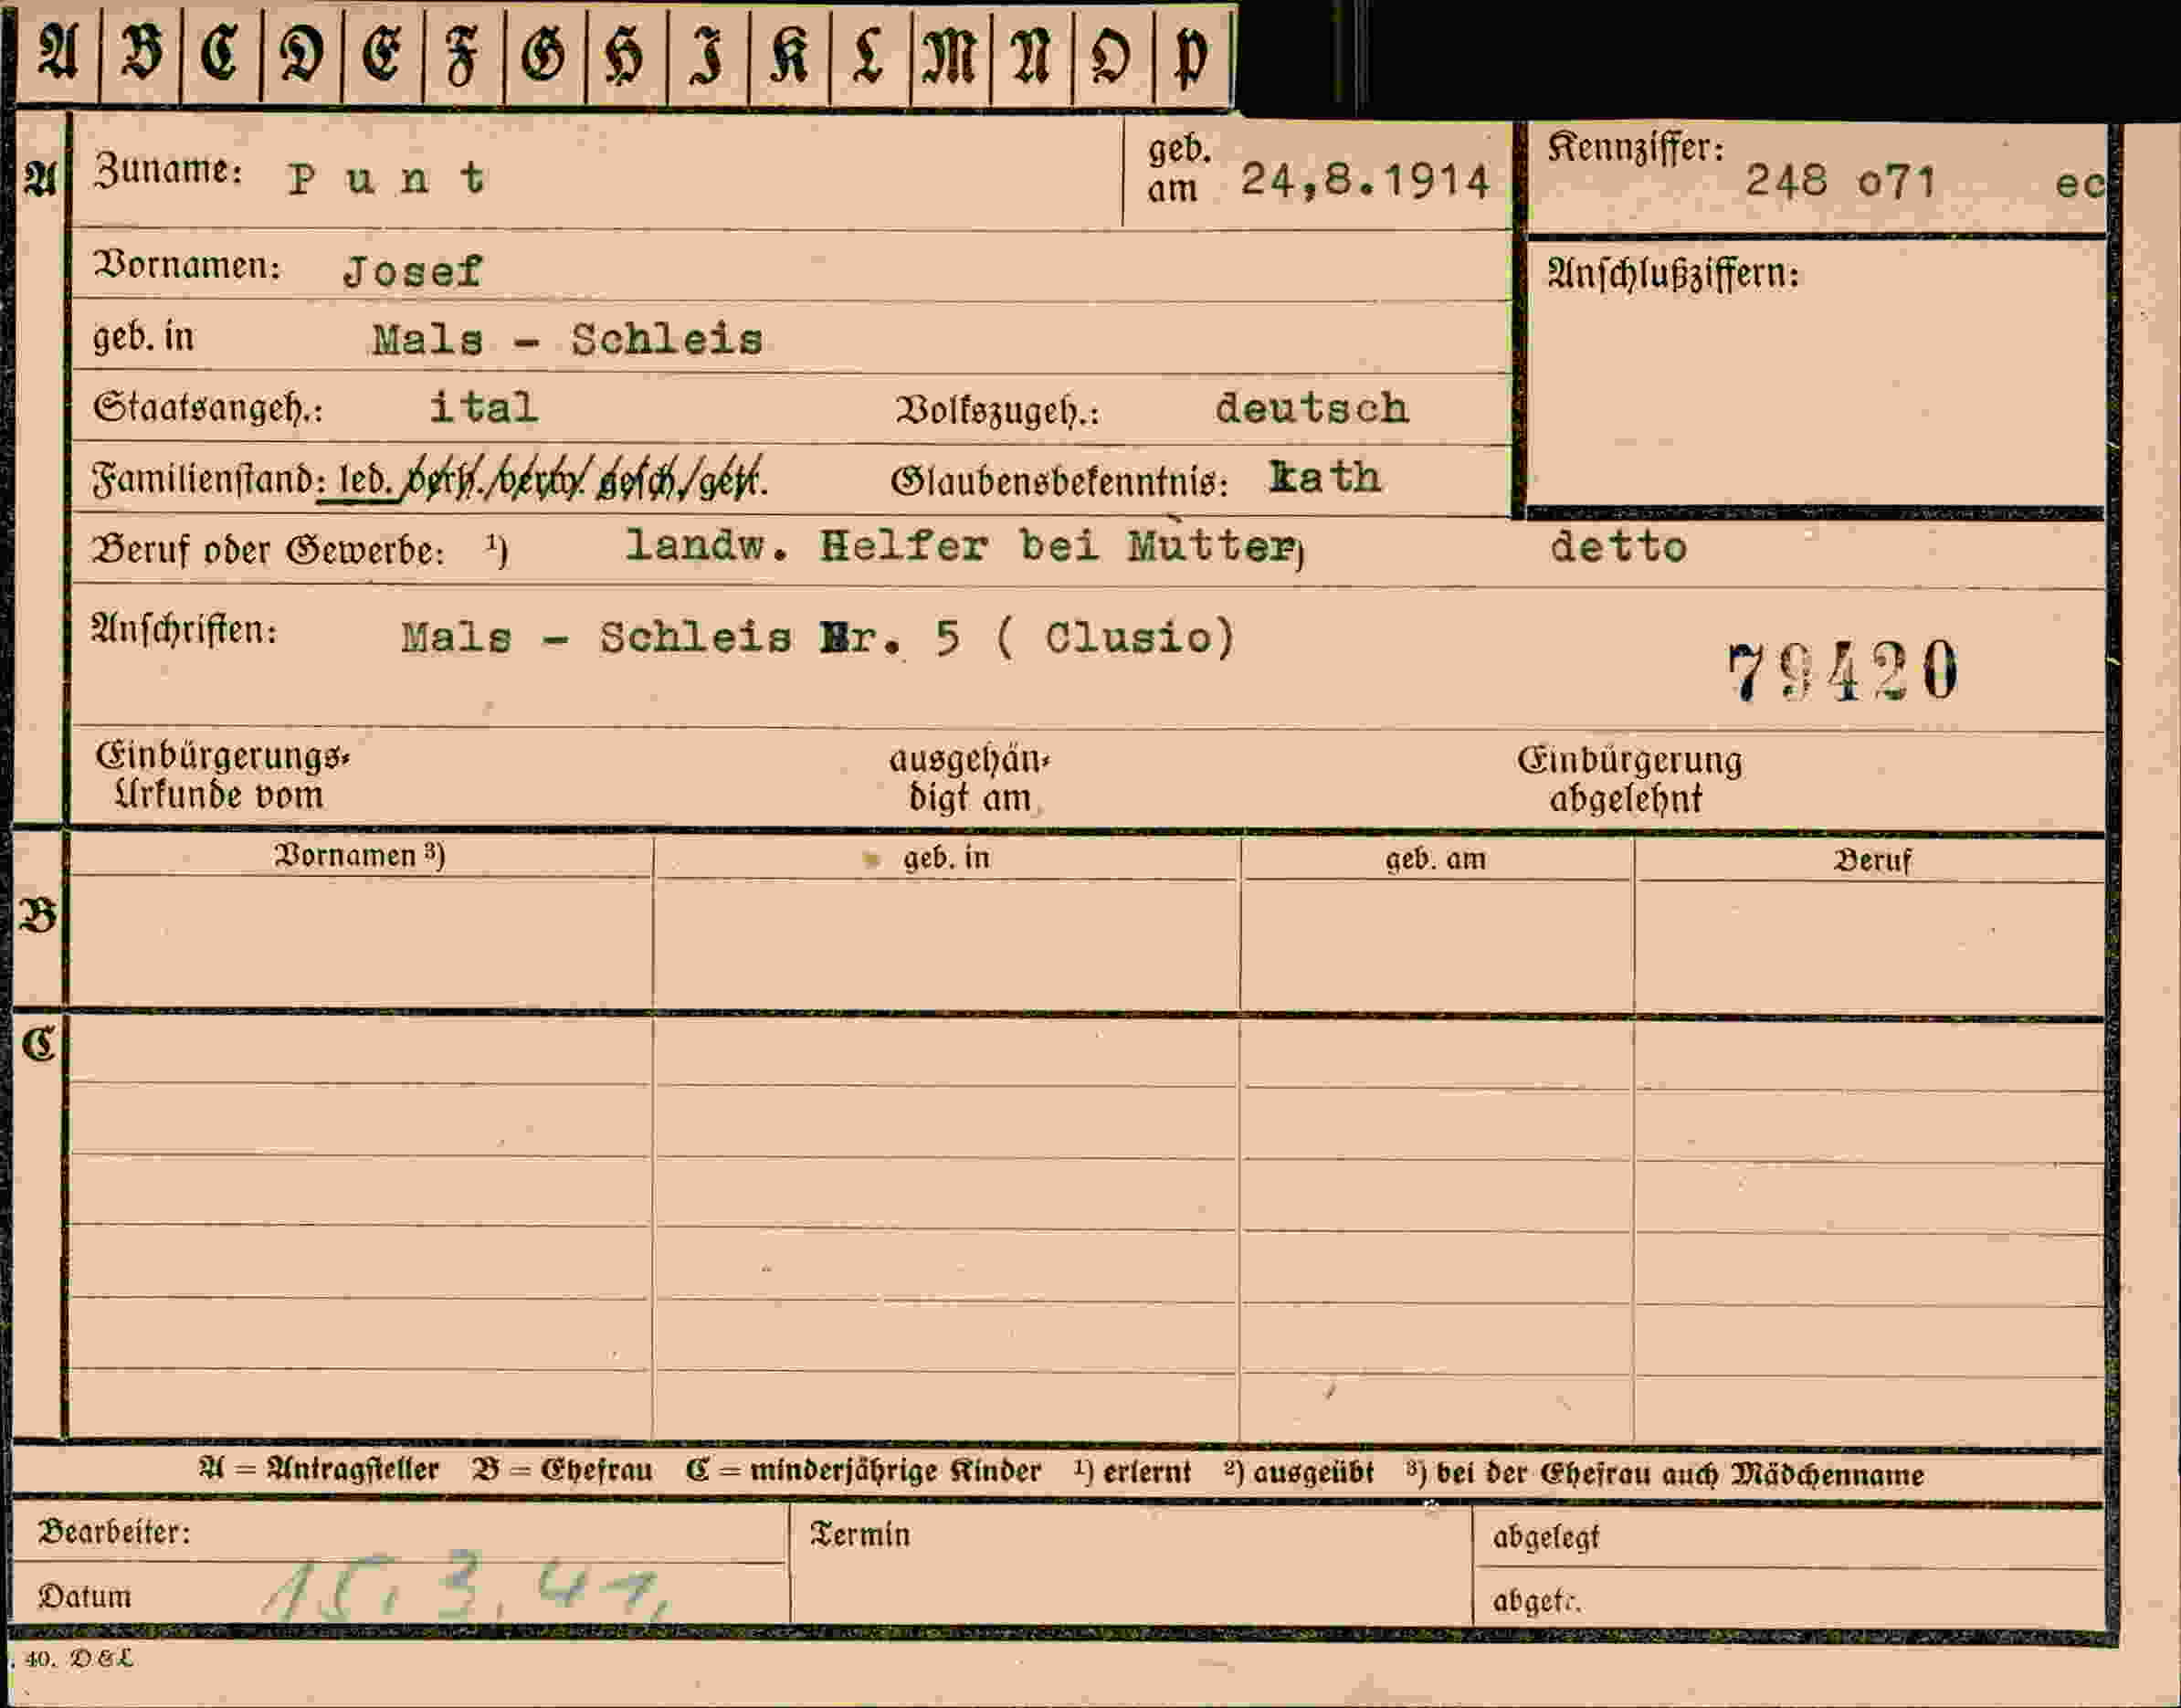 A B C D E F G H I K L M N O P
A Zuname: Punt geb. am 24,8.1914 Kennziffer: 248 o71 ec
Vornamen: Josef Anschlußziffern:
geb. in Mals - Schleis
Staatsangeh.: ital Volkszugeh.: deutsch
Familienstand: led. verh./verw. gesch./getr. Glaubensbekenntnis: kath
Beruf oder Gewerbe: ¹) landw. Helfer bei Mutter, detto
Anschriften: Mals - Schleis Nr. 5 ( Clusio)
79420
Einbürgerungs-Urkunde vom ausgehän-digt am Einbürgerung abgelehnt
Vornamen ³) geb. in geb. am Beruf
B
C
A = Antragsteller B = Ehefrau C = minderjährige Kinder ¹) erlernt ²) ausgeübt ³) bei der Ehefrau auch Mädchenname
Bearbeiter: Termin abgelegt
Datum 15.3.41. abgetr.
40. D & L